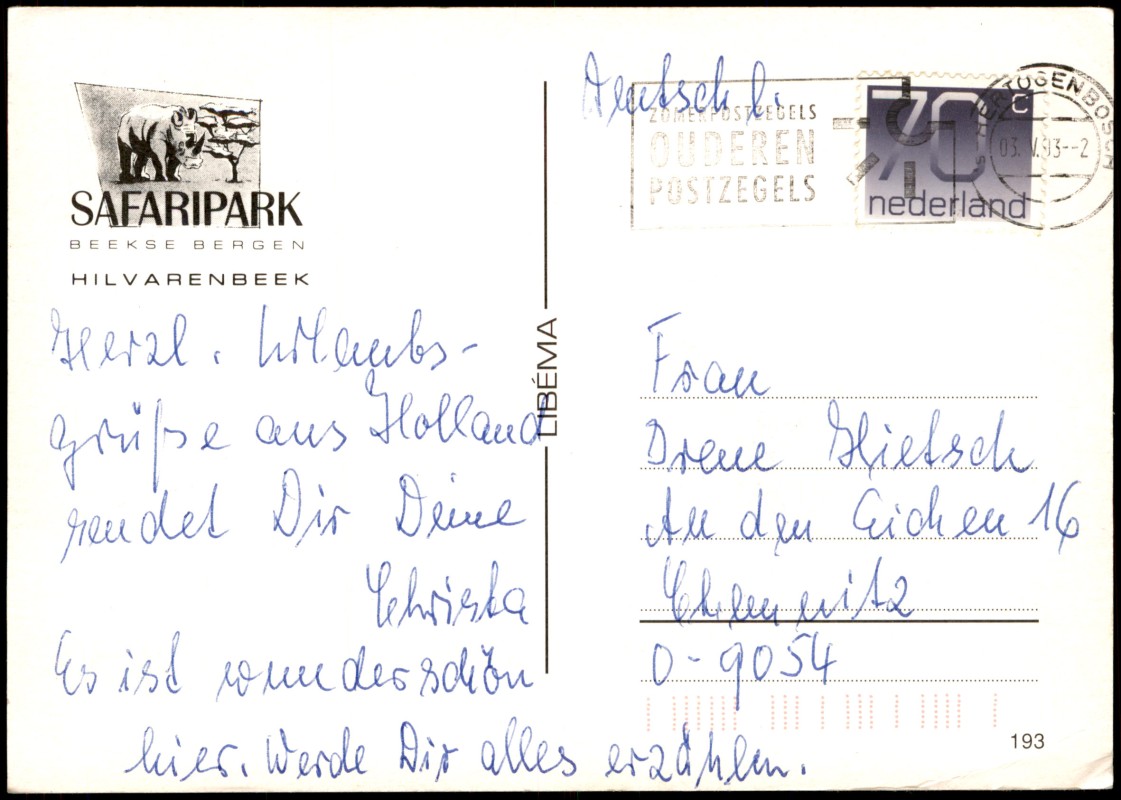 SAFARIPARK
BEEKSE BERGEN
HILVARENBEEK
Herzl. Urlaubs-
grüße aus Holland
sendet Dir Deine
Christa
Es ist wunderschön
hier. Werde Dir alles erzählen.
LIBÉMA
Deutschl.
ZOMERPOSTZEGELS
OUDEREN
POSTZEGELS
70 c
nederland
HERTOGENBOSCH
Frau
Irene Hietsch
An den Eichen 16
Chemnitz
O-9054
193